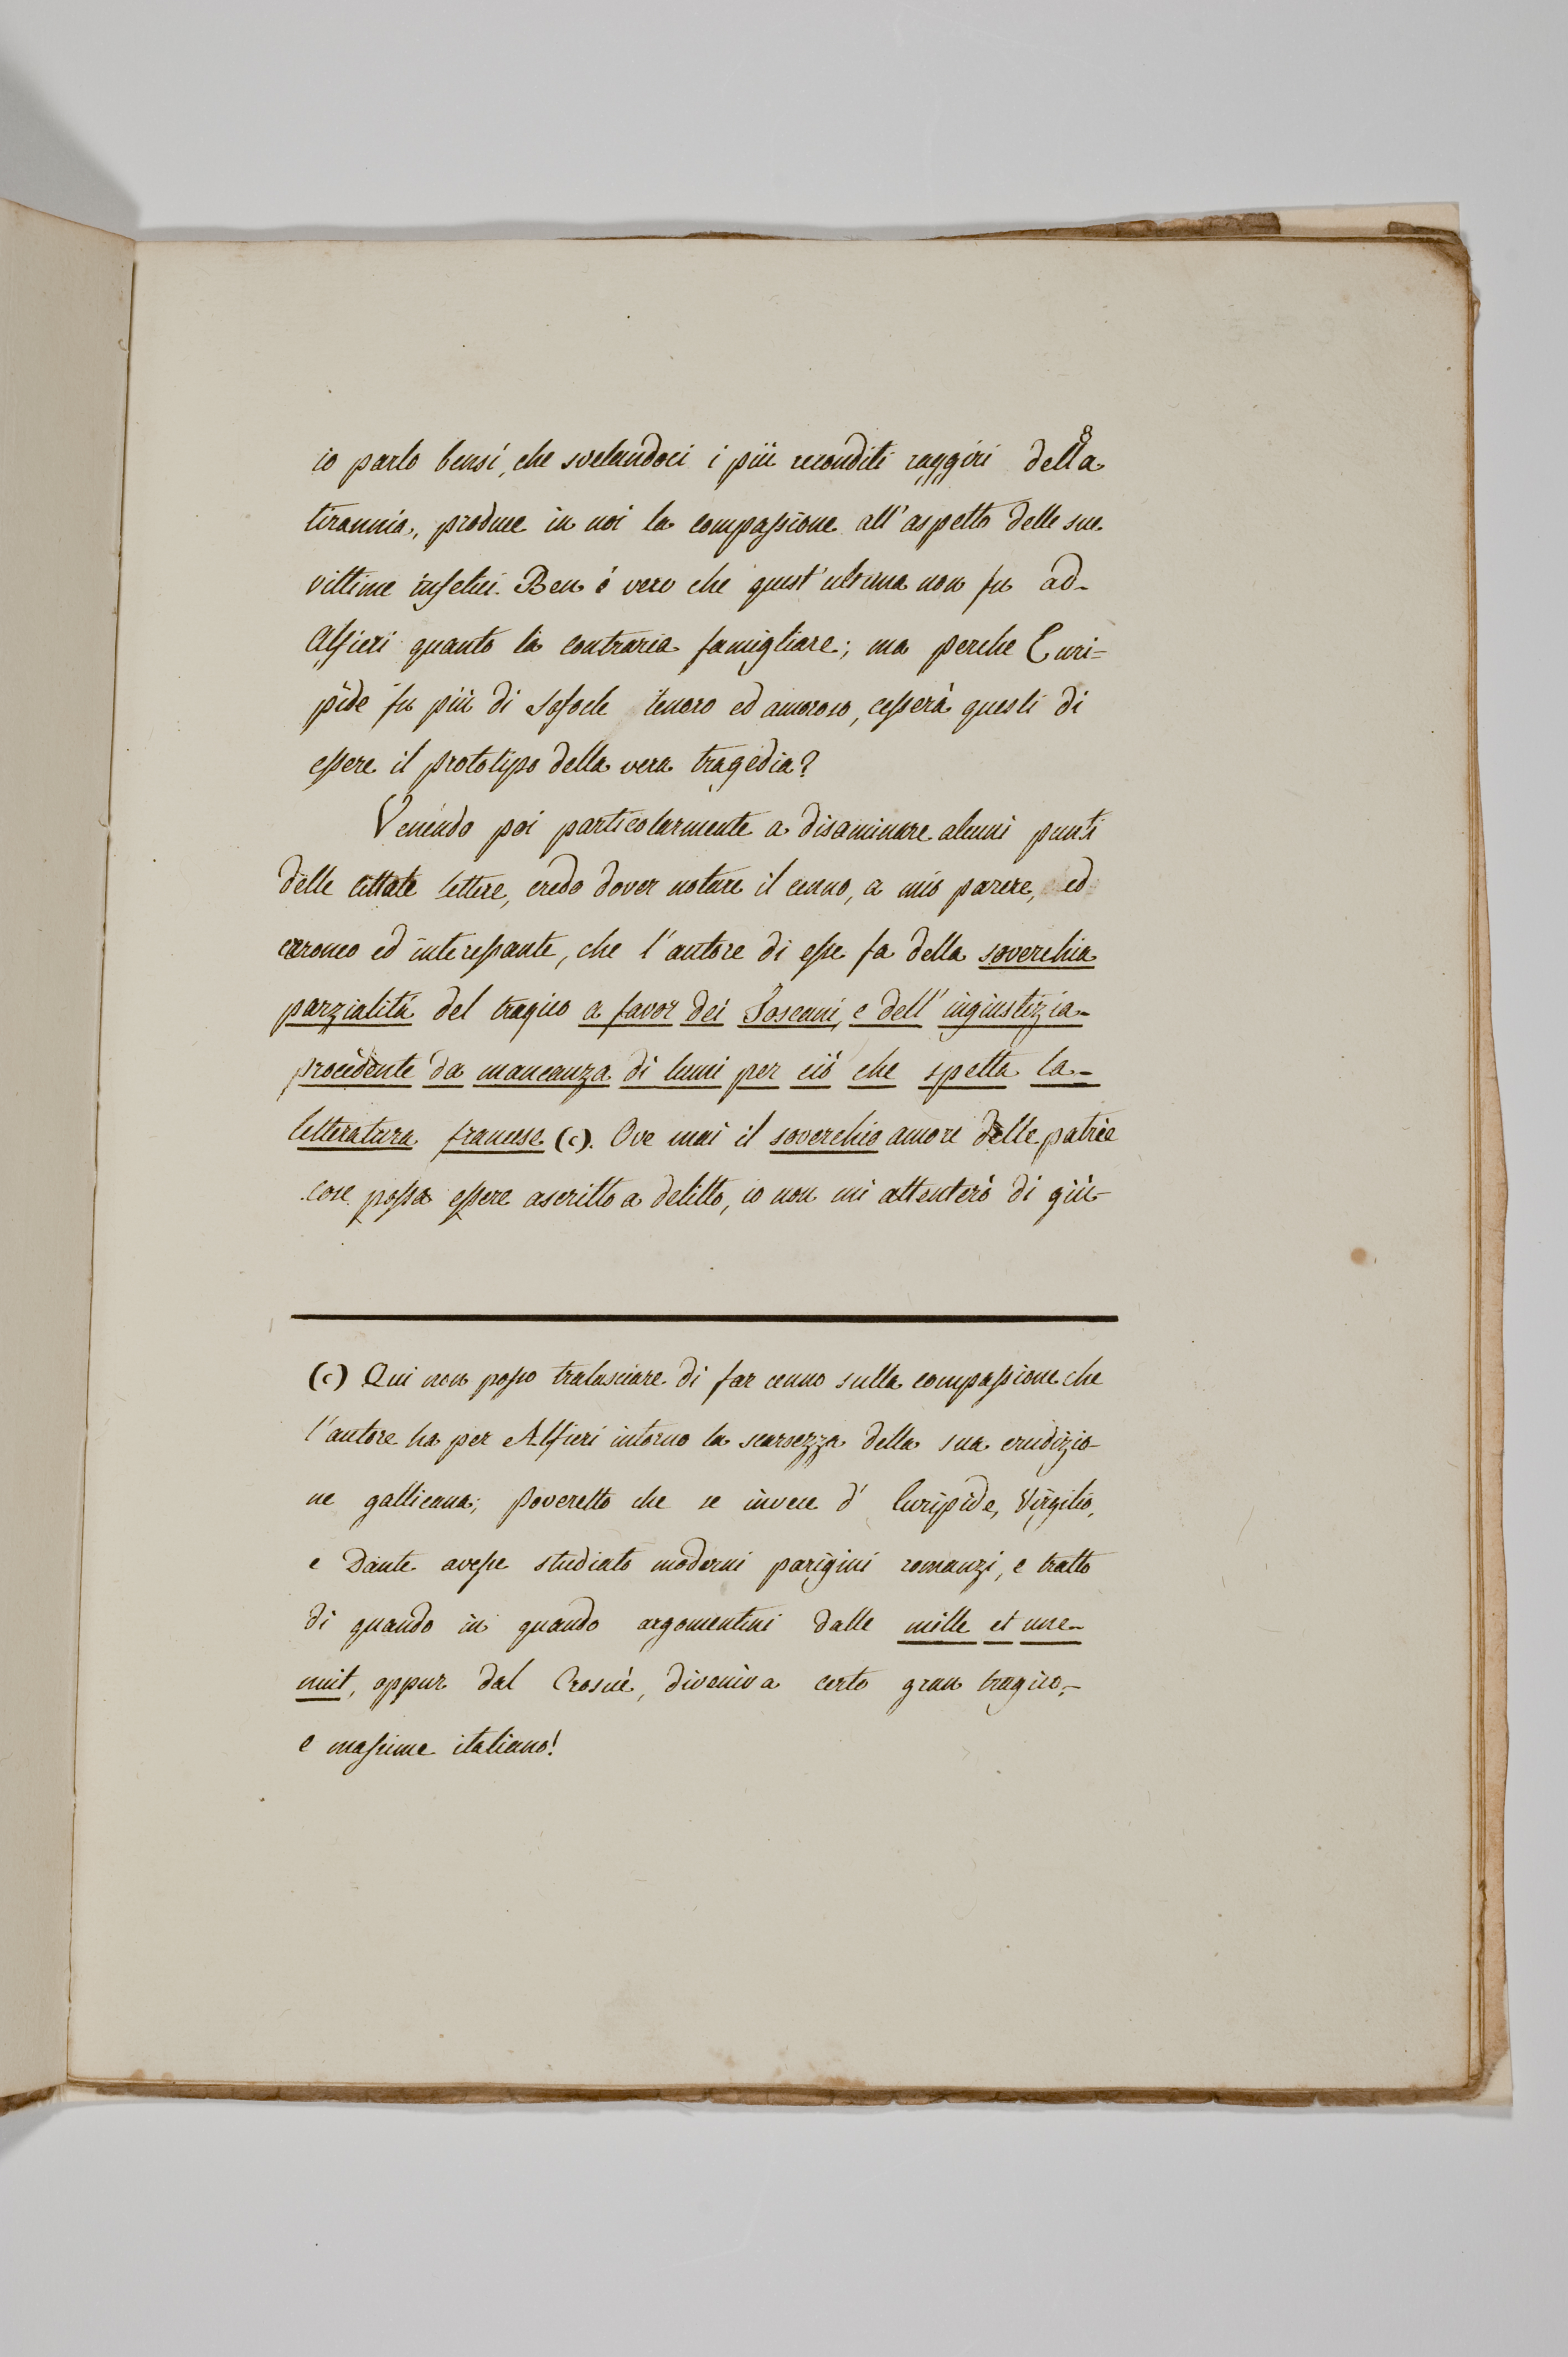 io parlo bensí, che svelandoci i più reconditi raggiri della
tirannia, produce in noi la compassione all'aspetto delle sue
vittime infelici. Ben é vero che quest'ultima non fu ad-
Alfieri quanto la contraria famigliare; ma perche Euri=
pide fu più di Sofocle tenero ed amoroso, cesserà questi di
essere il prototipo della vera tragedia?
Venendo poi particolarmente a disaminare alcuni punti
delle cittate lettere, credo dover notare il cenno, a mio parere, ed
erroneo ed interessante, che l'autore di esse fa della soverchia
parzialitá del tragico a favor dei Toscani, e dell'ingiustizia-
procedente da mancanza di lumi per ció che spetta la-
letteratura francese (c). Ove mai il soverchio amore delle patrie
cose possa essere ascritto a delitto, io non mi attenteró di giú-
(c) Qui non posso tralasciare di far cenno sulla compassione che
l'autore ha per Alfieri intorno la scarsezza della sua erudizio-
ne gallicana; poveretto che se invece d' Euripide, Virgilio,
e Dante avesse studiato moderni parigini romanzi, e tratto
di quando in quando argomentini dalle mille et une-
nuit, oppur dal Crosué, diveniva certo gran tragico,-
e massime italiano!